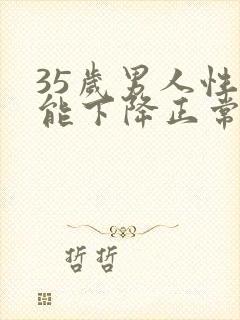 35岁男人性
能下降正常
哲哲